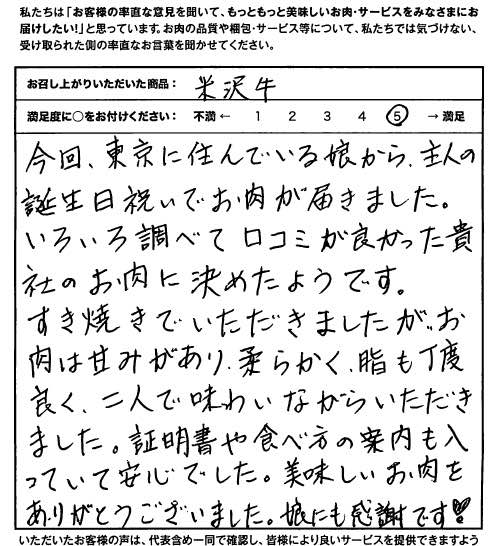 私たちは「お客様の率直な意見を聞いて、もっともっと美味しいお肉・サービスをみなさまにお
届けしたい！」と思っています。お肉の品質や梱包・サービス等について、私たちでは気づけない、
受け取られた側の率直なお言葉を聞かせてください。
お召し上がりいただいた商品： 米沢牛
満足度に○をお付けください： 不満 ← 1 2 3 4 5 → 満足
今回、東京に住んでいる娘から、主人の
誕生日祝いでお肉が届きました。
いろいろ調べて口コミが良かった貴
社のお肉に決めたようです。
すき焼きでいただきましたが、お
肉は甘みがあり、柔らかく、脂も丁度
良く、二人で味わいながらいただき
ました。証明書や食べ方の案内も入
っていて安心でした。美味しいお肉を
ありがとうございました。娘にも感謝です♡
いただいたお客様の声は、代表含め一同で確認し、皆様により良いサービスを提供できますよう